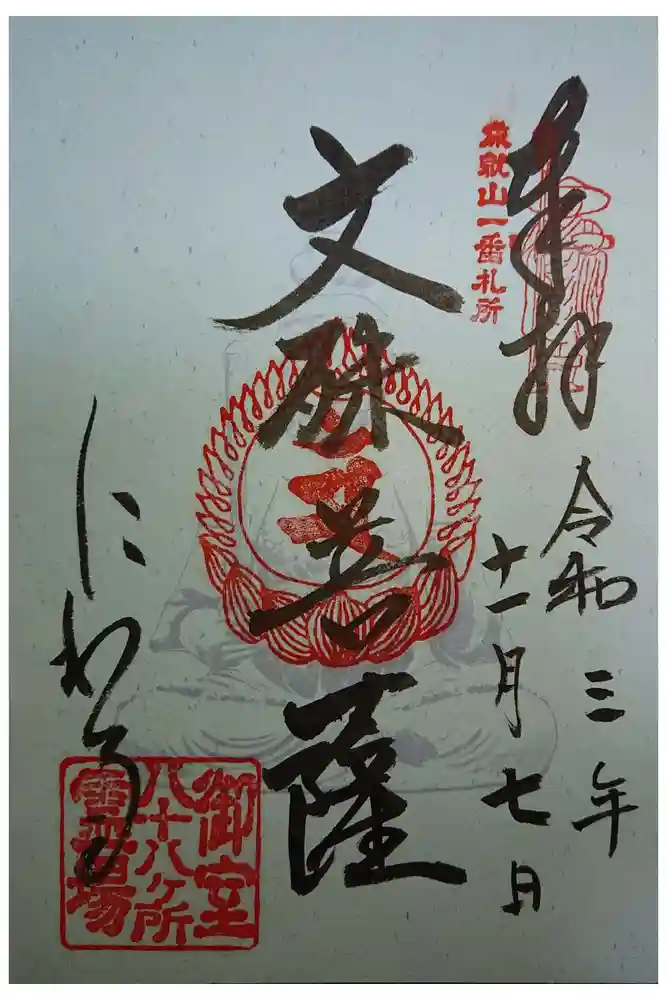 奉拝
成就山一番札所
令和三年
十一月七日
文殊菩薩
御室
八十八ケ所
霊場